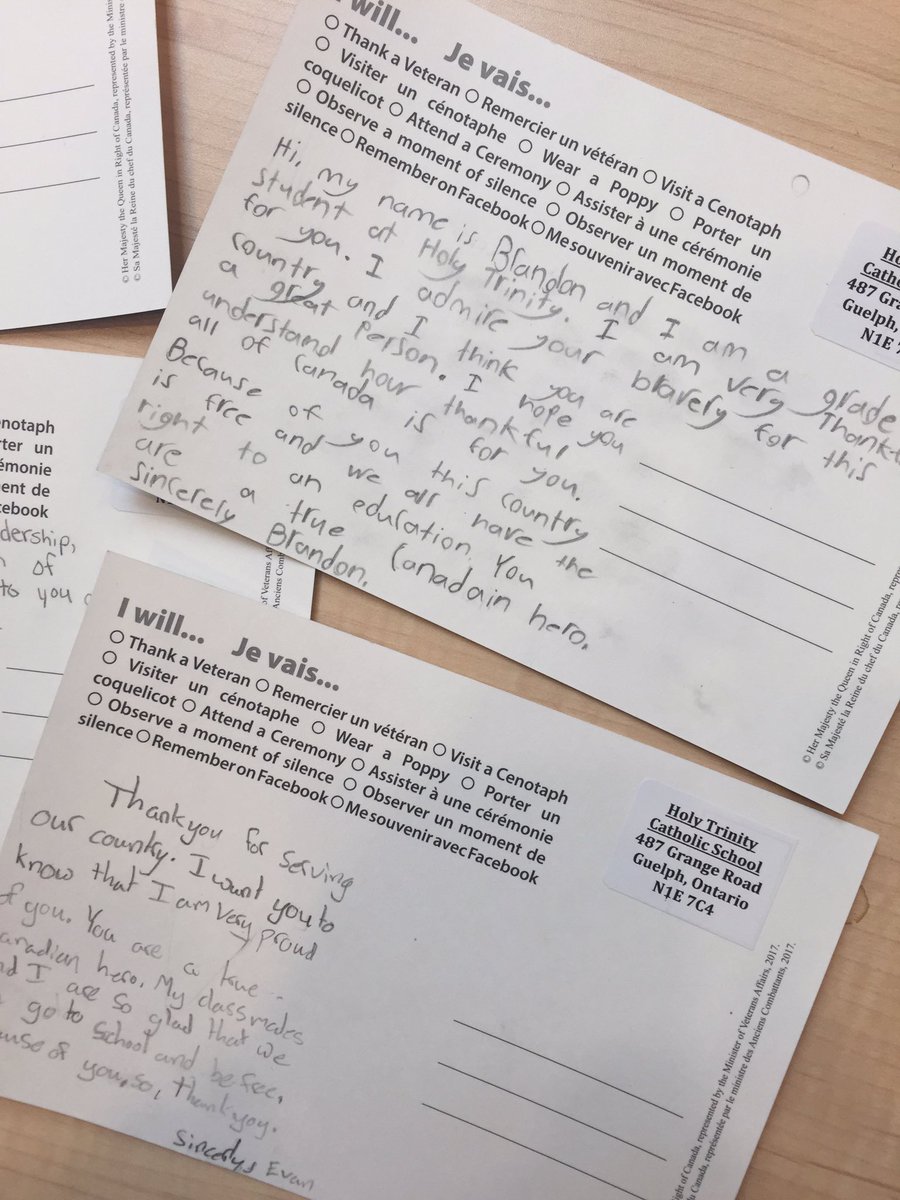 © Her Majesty the Queen in Right of Canada, represented by the Minister
© Sa Majesté la Reine du chef du Canada, représentée par le ministre
I will... Je vais...
○ Thank a Veteran ○ Remercier un vétéran ○ Visit a Cenotaph
○ Visiter un cénotaphe ○ Wear a Poppy ○ Porter un
coquelicot ○ Attend a Ceremony ○ Assister à une cérémonie
○ Observe a moment of silence ○ Observer un moment de
silence ○ Remember on Facebook ○ Me souvenir avec Facebook
Hi, my name is Brandon and I am a grade
student at Holy Trinity. I am very Thank
for you. I admire your bravery for this
country and I think you are
a great Person. I hope you
understand hour thankful
all of Canada is for you.
Because of you this country
is free and we all have the
right to an education. You
are a true Canadain hero.
sincerely Brandon.
Catholic
487 Gra
Guelph,
N1E 7
© Her Majesty the Queen in Right of Canada, repres
© Sa Majesté la Reine du chef du Canada, représentée
enotaph
rter un
émonie
ent de
cebook
dership,
of
to you
of Veterans Aff
Anciens Combattants
I will... Je vais...
○ Thank a Veteran ○ Remercier un vétéran ○ Visit a Cenotaph
○ Visiter un cénotaphe ○ Wear a Poppy ○ Porter un
coquelicot ○ Attend a Ceremony ○ Assister à une cérémonie
○ Observe a moment of silence ○ Observer un moment de
silence ○ Remember on Facebook ○ Me souvenir avec Facebook
Thankyou for serving
our country. I want you to
know that I am very proud
of you. You are a true
anadian hero. My classmates
nd I are so glad that we
go to school and be free,
ause of you, so, thankyou.
Sincerlys Evan
Holy Trinity
Catholic School
487 Grange Road
Guelph, Ontario
N1E 7C4
Canada, represented by the Minister of Veterans Affairs, 2017.
Canada, représentée par le ministre des Anciens Combattants, 2017.